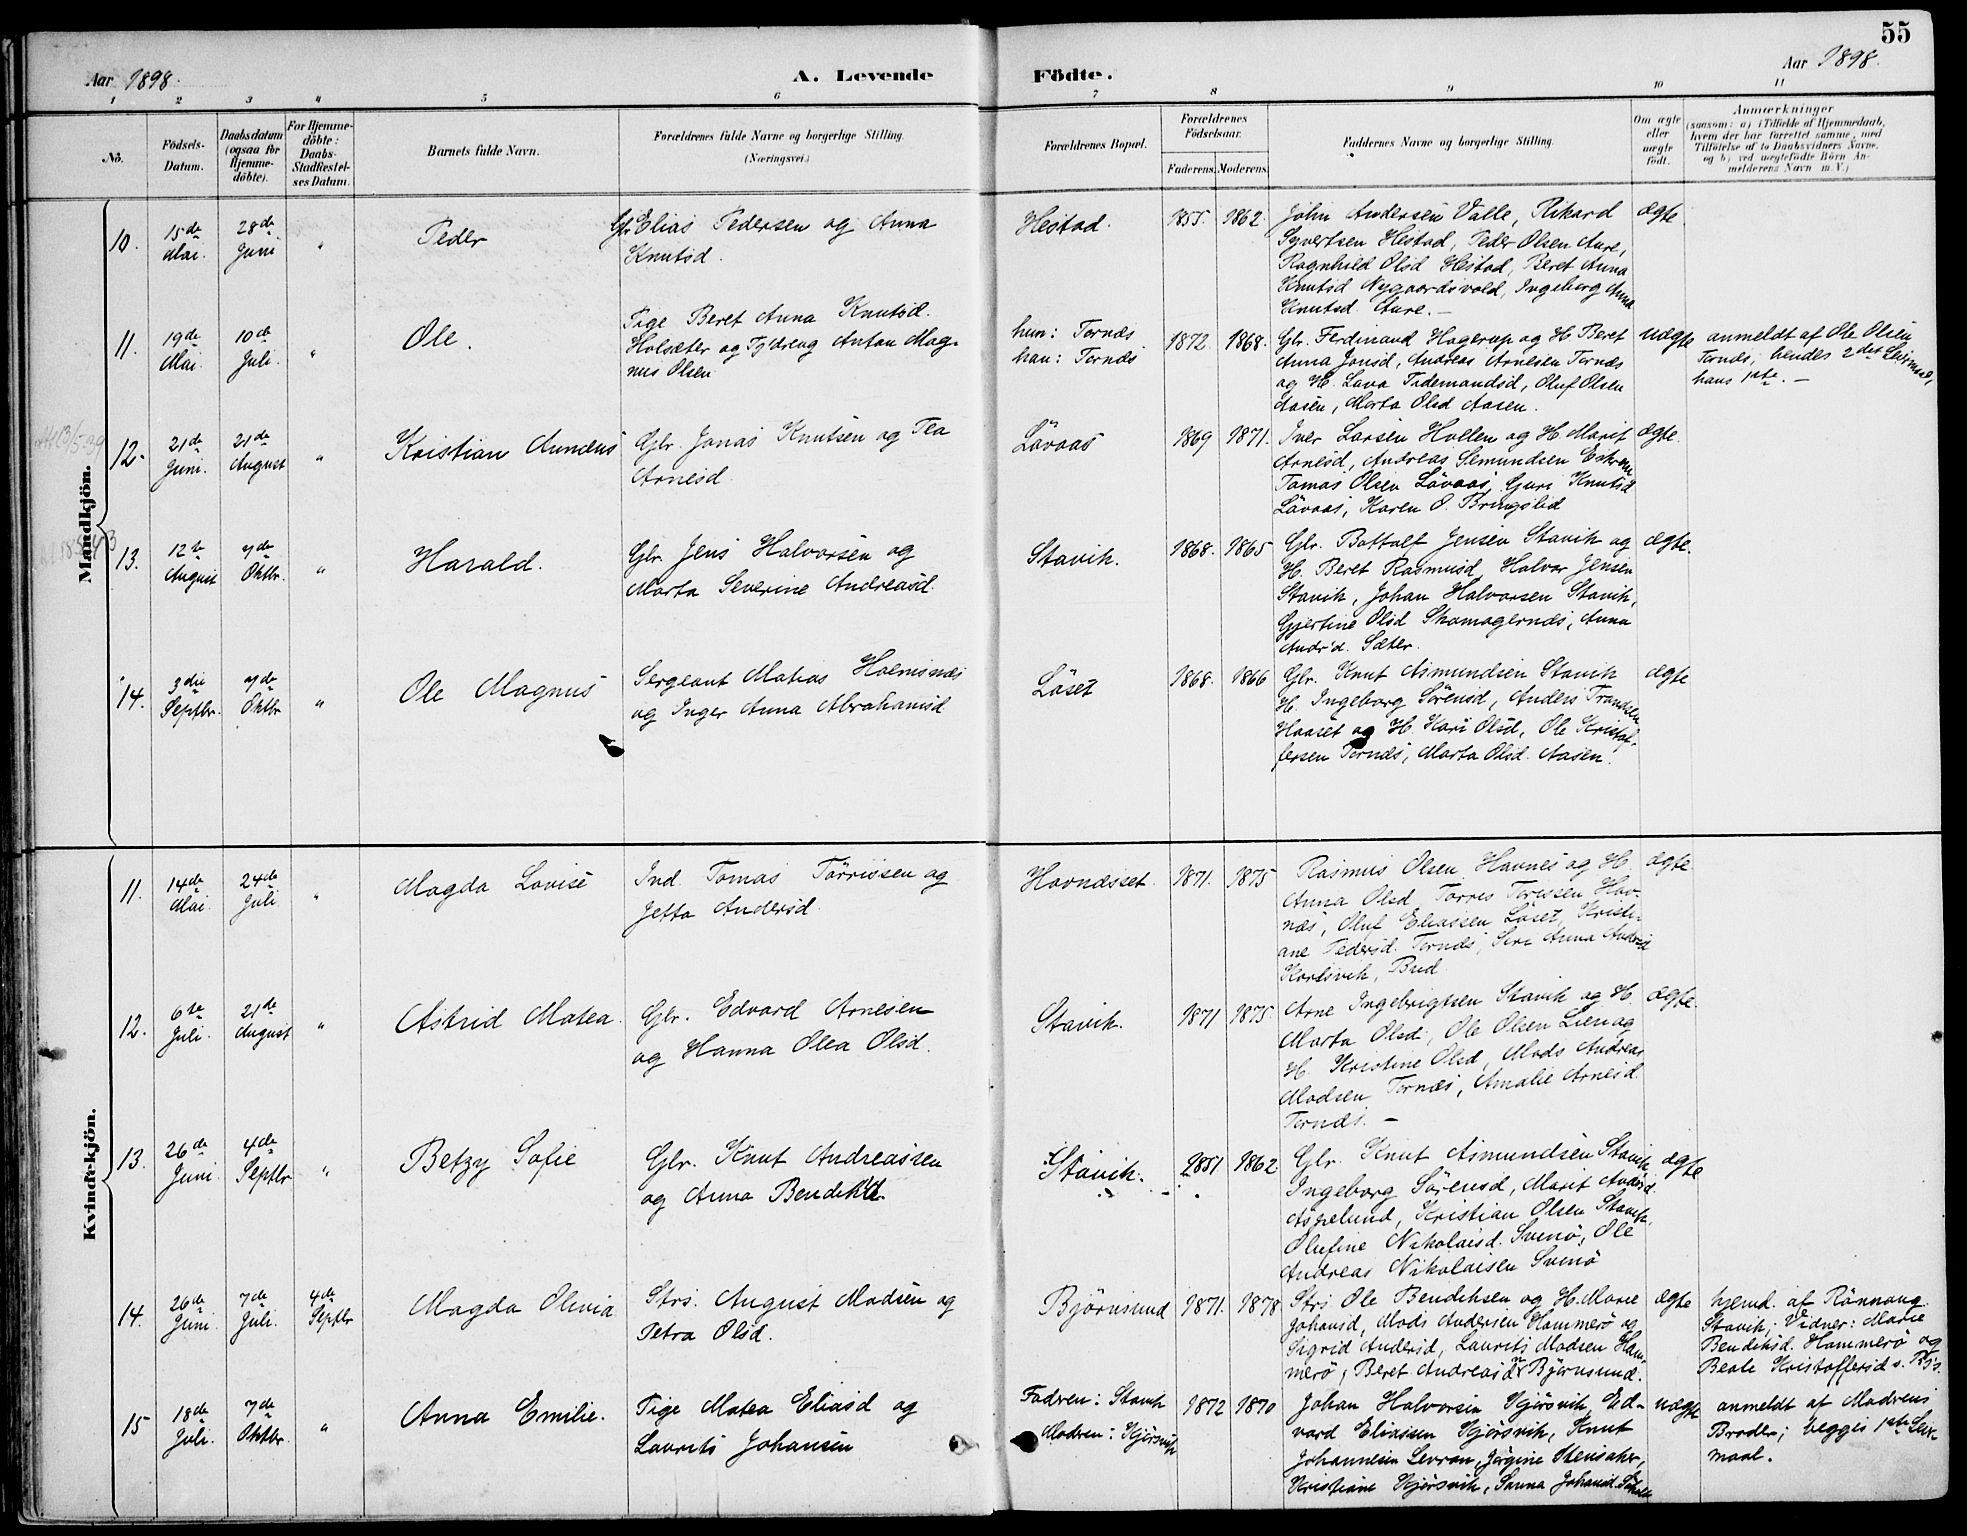 55
Aar 1898.
A. Levende Födte.
Aar 1898.
1 2 3 4 5 6 7 8 9 10 11
No.
Födsels-Datum.
Daabsdatum (ogsaa for Hjemme-döbte).
For Hjemme-döbte: Daabs-Stadfæstel-ses Datum.
Barnets fulde Navn.
Forældrenes fulde Navne og borgerlige Stilling.
(Næringsvei.)
Forældrenes Bopæl.
Forældrenes Födselsaar.
Faderens. Moderens.
Faddernes Navne og borgerlige Stilling.
Om ægte eller uægte født.
Anmærkninger
(saasom: a) i Tilfælde af Hjemmedaab,
hvem der har forrettet samme, med
Tilföielse af to Daabsvidners Navne,
og b) ved uægtefödte Börn An-
melderens Navn m. V.)
Mandkjön.
10. 15de Mai. 28de Juni " Peder
Gbr. Elias Pedersen og Anna
Knutsd.
Hestad. 1855. 1862.
John Andersen Valle, Rikard
Syvertsen Hestad, Peder Olsen Aure,
Ragnhild Olsd Hestad, Beret Anna
Knutsd Nygaardsvold, Ingeborg Anna
Knutsd. Aure. —
ægte
11. 19de Mai. 10de Juli. " Ole.
Pige Beret Anna Knutsd.
Holsæter og Tj. dreng Anton Mag-
nus Olsen
hun: Tornæs
han: Tornæs
1872. 1868.
Gbr. Ferdinand Hagerup og H. Beret
Anna Jonsd, Andreas Arnesen Tornæs
og H. Lava Tidemandsd, Oluf Olsen
Aasen, Marta Olsd Aasen.
uægte
anmeldt af Ole Olsen
Tornæs; hendes 2det Leirmaal,
hans 1ste. —
12. 21de Juni. 21de August " Kristian Aundens
Gbr. Jonas Knutsen og Tea
Arnesd.
Lövaas 1869 1871.
Iver Larsen Hollen og H. Marit
Arnesd, Andreas Semundsen Eskrem
Tomas Olsen Lövaas, Guri Knutsd
Lövaas, Karen O. Bringslid
ægte.
13. 12te August 7de Oktbr. " Harald.
Gbr. Jens Halvorsen og
Marta Severine Andreasd.
Stavik. 1868. 1865
Gbr. Bottolf Jensen Stavik og
H. Beret Rasmusd, Halvor Jensen
Stavik, Johan Halvorsen Stavik,
Gjertine Olsd Skomagernæs, Anna
Andr'd. Sæter.
ægte.
14. 3die Septbr. 7de Oktbr " Ole Magnus
Sergeant Matias Holmsnæs
og Inger Anna Abrahamsd
Löset 1868. 1866
Gbr. Knut Asmundsen Stavik
H. Ingeborg Sörensd, Anders Trondsen
Haaset og H. Kari Olsd, Ole Kristof-
fersen Tornæs, Marta Olsd. Aasen.
ægte
Kvindekjön.
11. 14de Mai. 24de Juli. " Magda Lovise
Ind. Tomas Törrissen og
Jetta Andersd.
Havnæsset. 1871. 1875
Rasmus Olsen Havnes og H.
Anna Olsd, Torres Torissen Hav-
næs, Oluf Eliassen Löset, Kristi-
ane Pedersd. Tornæs, Seri Anna Andrsd
Korsvik, Bud.
ægte
12. 6te Juli. 21de August " Astrid Matea.
Gbr. Edvard Arnesen
og Hanna Olea Olsd.
Stavik. 1871 1875.
Arne Ingebrigtsen Stavik og H.
Marta Olsd, Ole Olsen Lien og
H. Kristine Olsd, Mads Andreas
Madsen Tornæs, Amalie Arnesd.
Tornæs. —
ægte.
13. 26de Juni 4de Septbr " Betzy Sofie
Gbr. Knut Andreassen
og Anna Bendiksd.
Stavik. 1851 1862
Gbr. Knut Asmundsen Stavik,
Ingeborg Sörensd, Marit Andrsd.
Aspelund, Kristian Olsen Stavik,
Olufine Nikolaisd. Svinö, Ole
Andreas Nikolaisen Svinö
ægte
14. 26de Juni 7de Juli. 4de Septbr Magda Olivia
Strs. August Madsen og
Petra Olsd.
Björnsund 1871. 1878
Strs Ole Bendiksen og H. Marie
Johansd, Mads Andersen Hammerö og
Sigrid Andersd, Laurits Madsen Ham-
merö, Beret Andreasd Björnsund.
ægte
hjemd. af Rönnaug
Stavik; Vidner: Marie
Bendiksd. Hammerö og
Beate Kristoffersd s. Pl's.
15 18de Juli. 7de Oktbr. " Anna Emilie.
Pige Matea Eliasd og
Laurits Johansen
Fadren: Stavik
Modren: Kjörsvik
1872 1870
Johan Halvorsen Kjörsvik, Ed-
vard Eliassen Kjörsvik, Knut
Johannesen Levran, Jörgine Stensaker,
Kristiane Kjörsvik, Sanna Johansd.
uægte
anmeldt af Madrens
Broder; begges 1ste Leir-
maal.